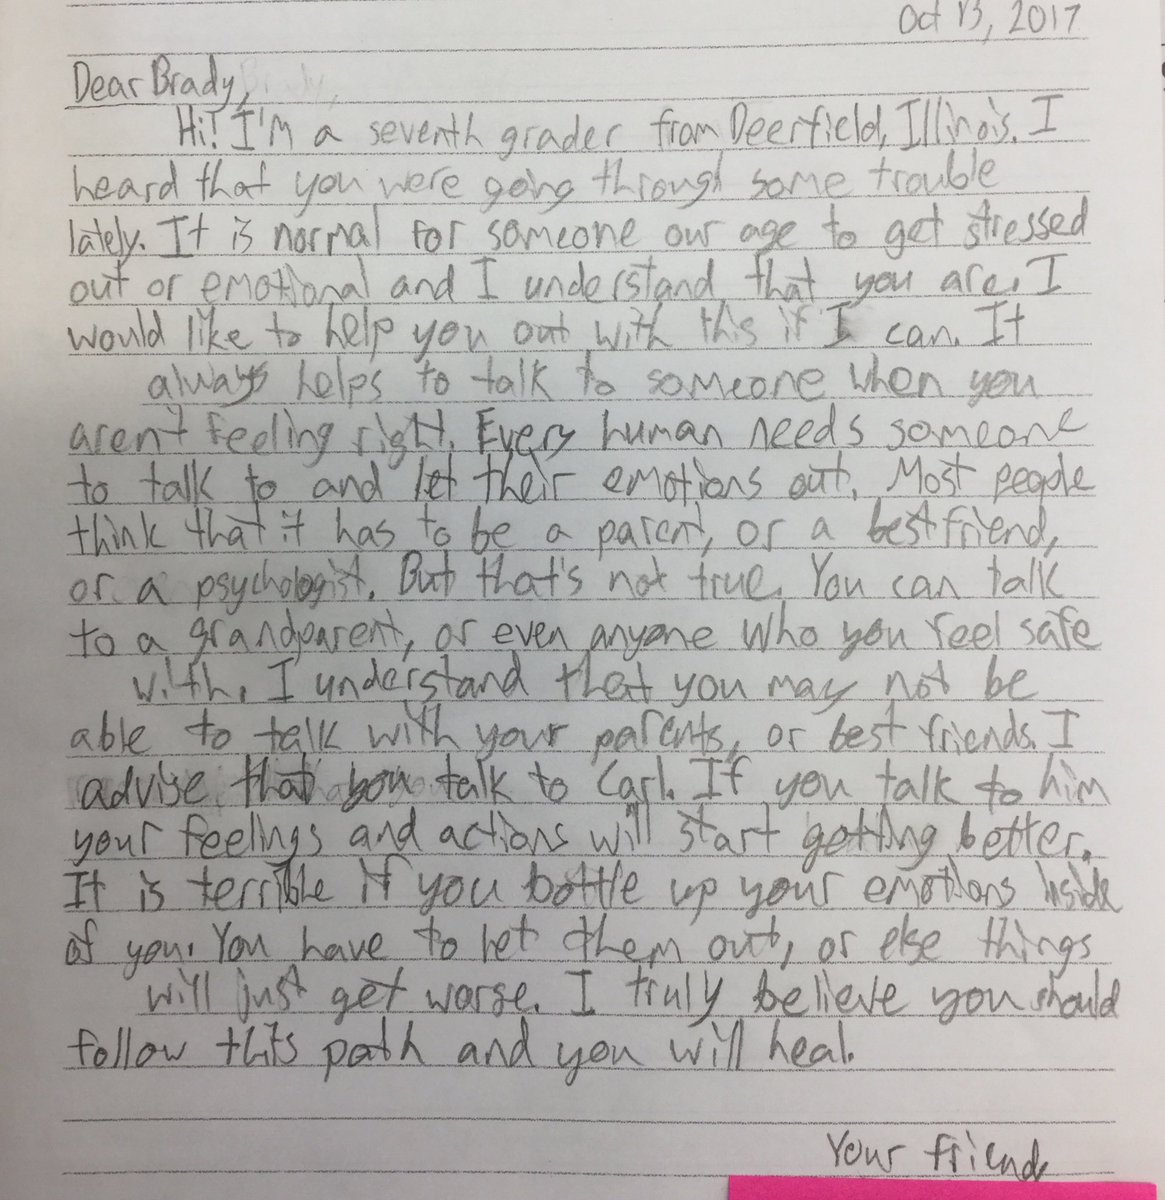 Oct 13, 2017
Dear Brady,
Hi! I'm a seventh grader from Deerfield, Illinois. I
heard that you were going through some trouble
lately. It is normal for someone our age to get stressed
out or emotional and I understand that you are. I
would like to help you out with this if I can. It
always helps to talk to someone when you
aren't feeling right. Every human needs someone
to talk to and let their emotions out. Most people
think that it has to be a parent, or a best friend,
or a psychologist. But that's not true. You can talk
to a grandparent, or even anyone who you feel safe
with. I understand that you may not be
able to talk with your parents, or best friends. I
advise that you talk to Carl. If you talk to him
your feelings and actions will start getting better.
It is terrible if you bottle up your emotions inside
of you. You have to let them out, or else things
will just get worse. I truly believe you should
follow this path and you will heal.
Your friend